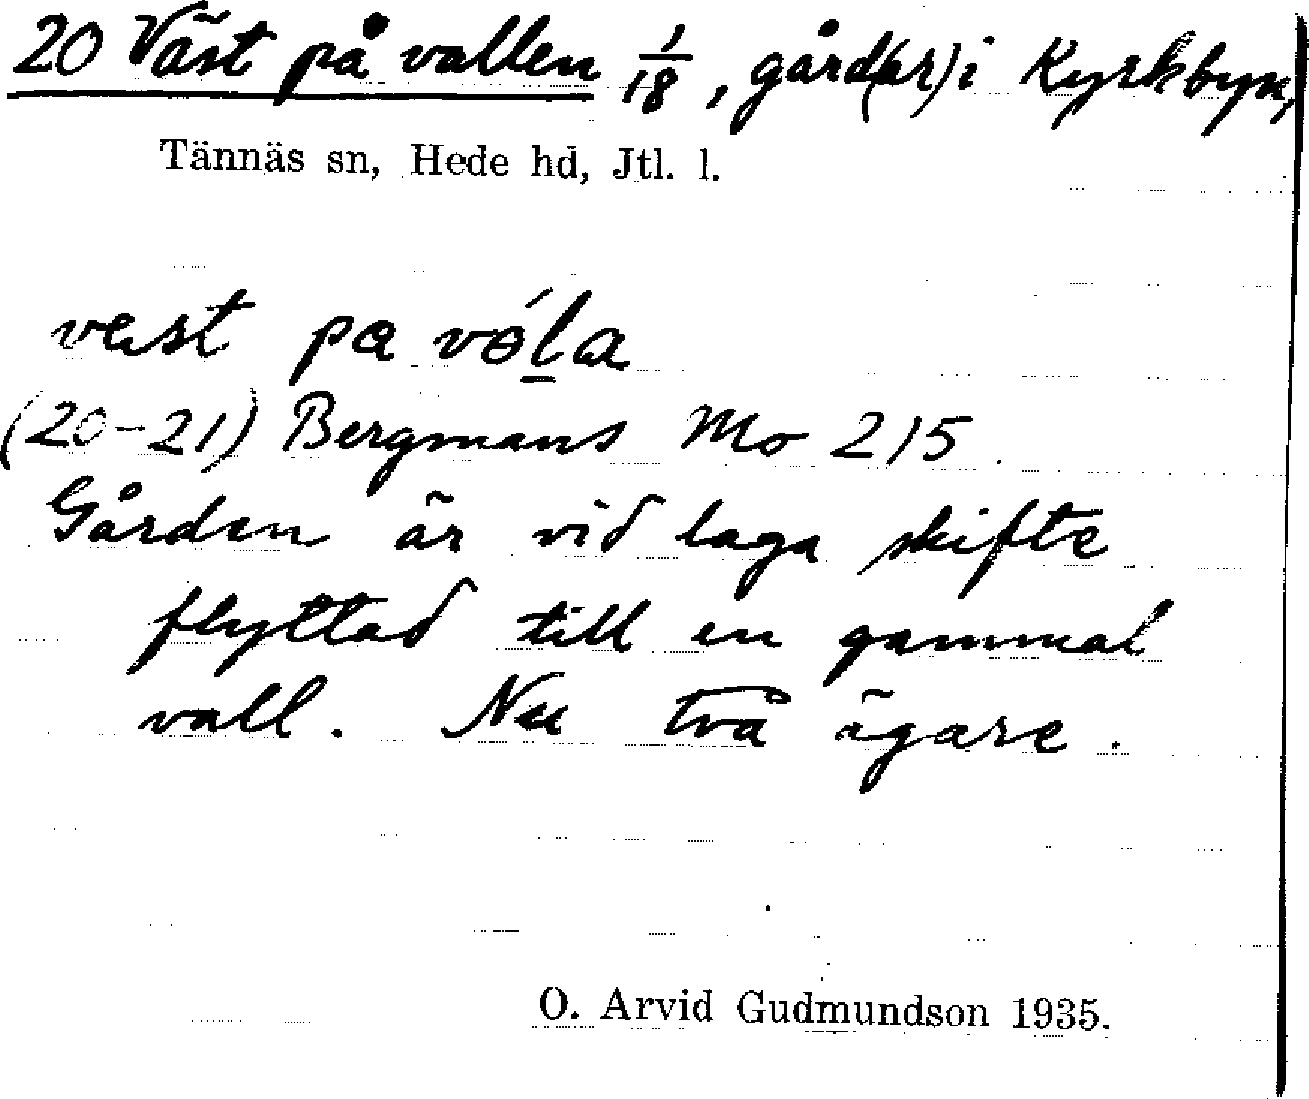 20 Väst på vallen 1/18, gård(ar) i Kyrkbyn,
Tännäs sn, Hede hd, Jtl. l.
vest pa vóla
(20-21) Bergmans Mo 215
Gården är vid laga skifte
flyttad till en gammal
vall. Nu två ägare.
O. Arvid Gudmundson 1935.